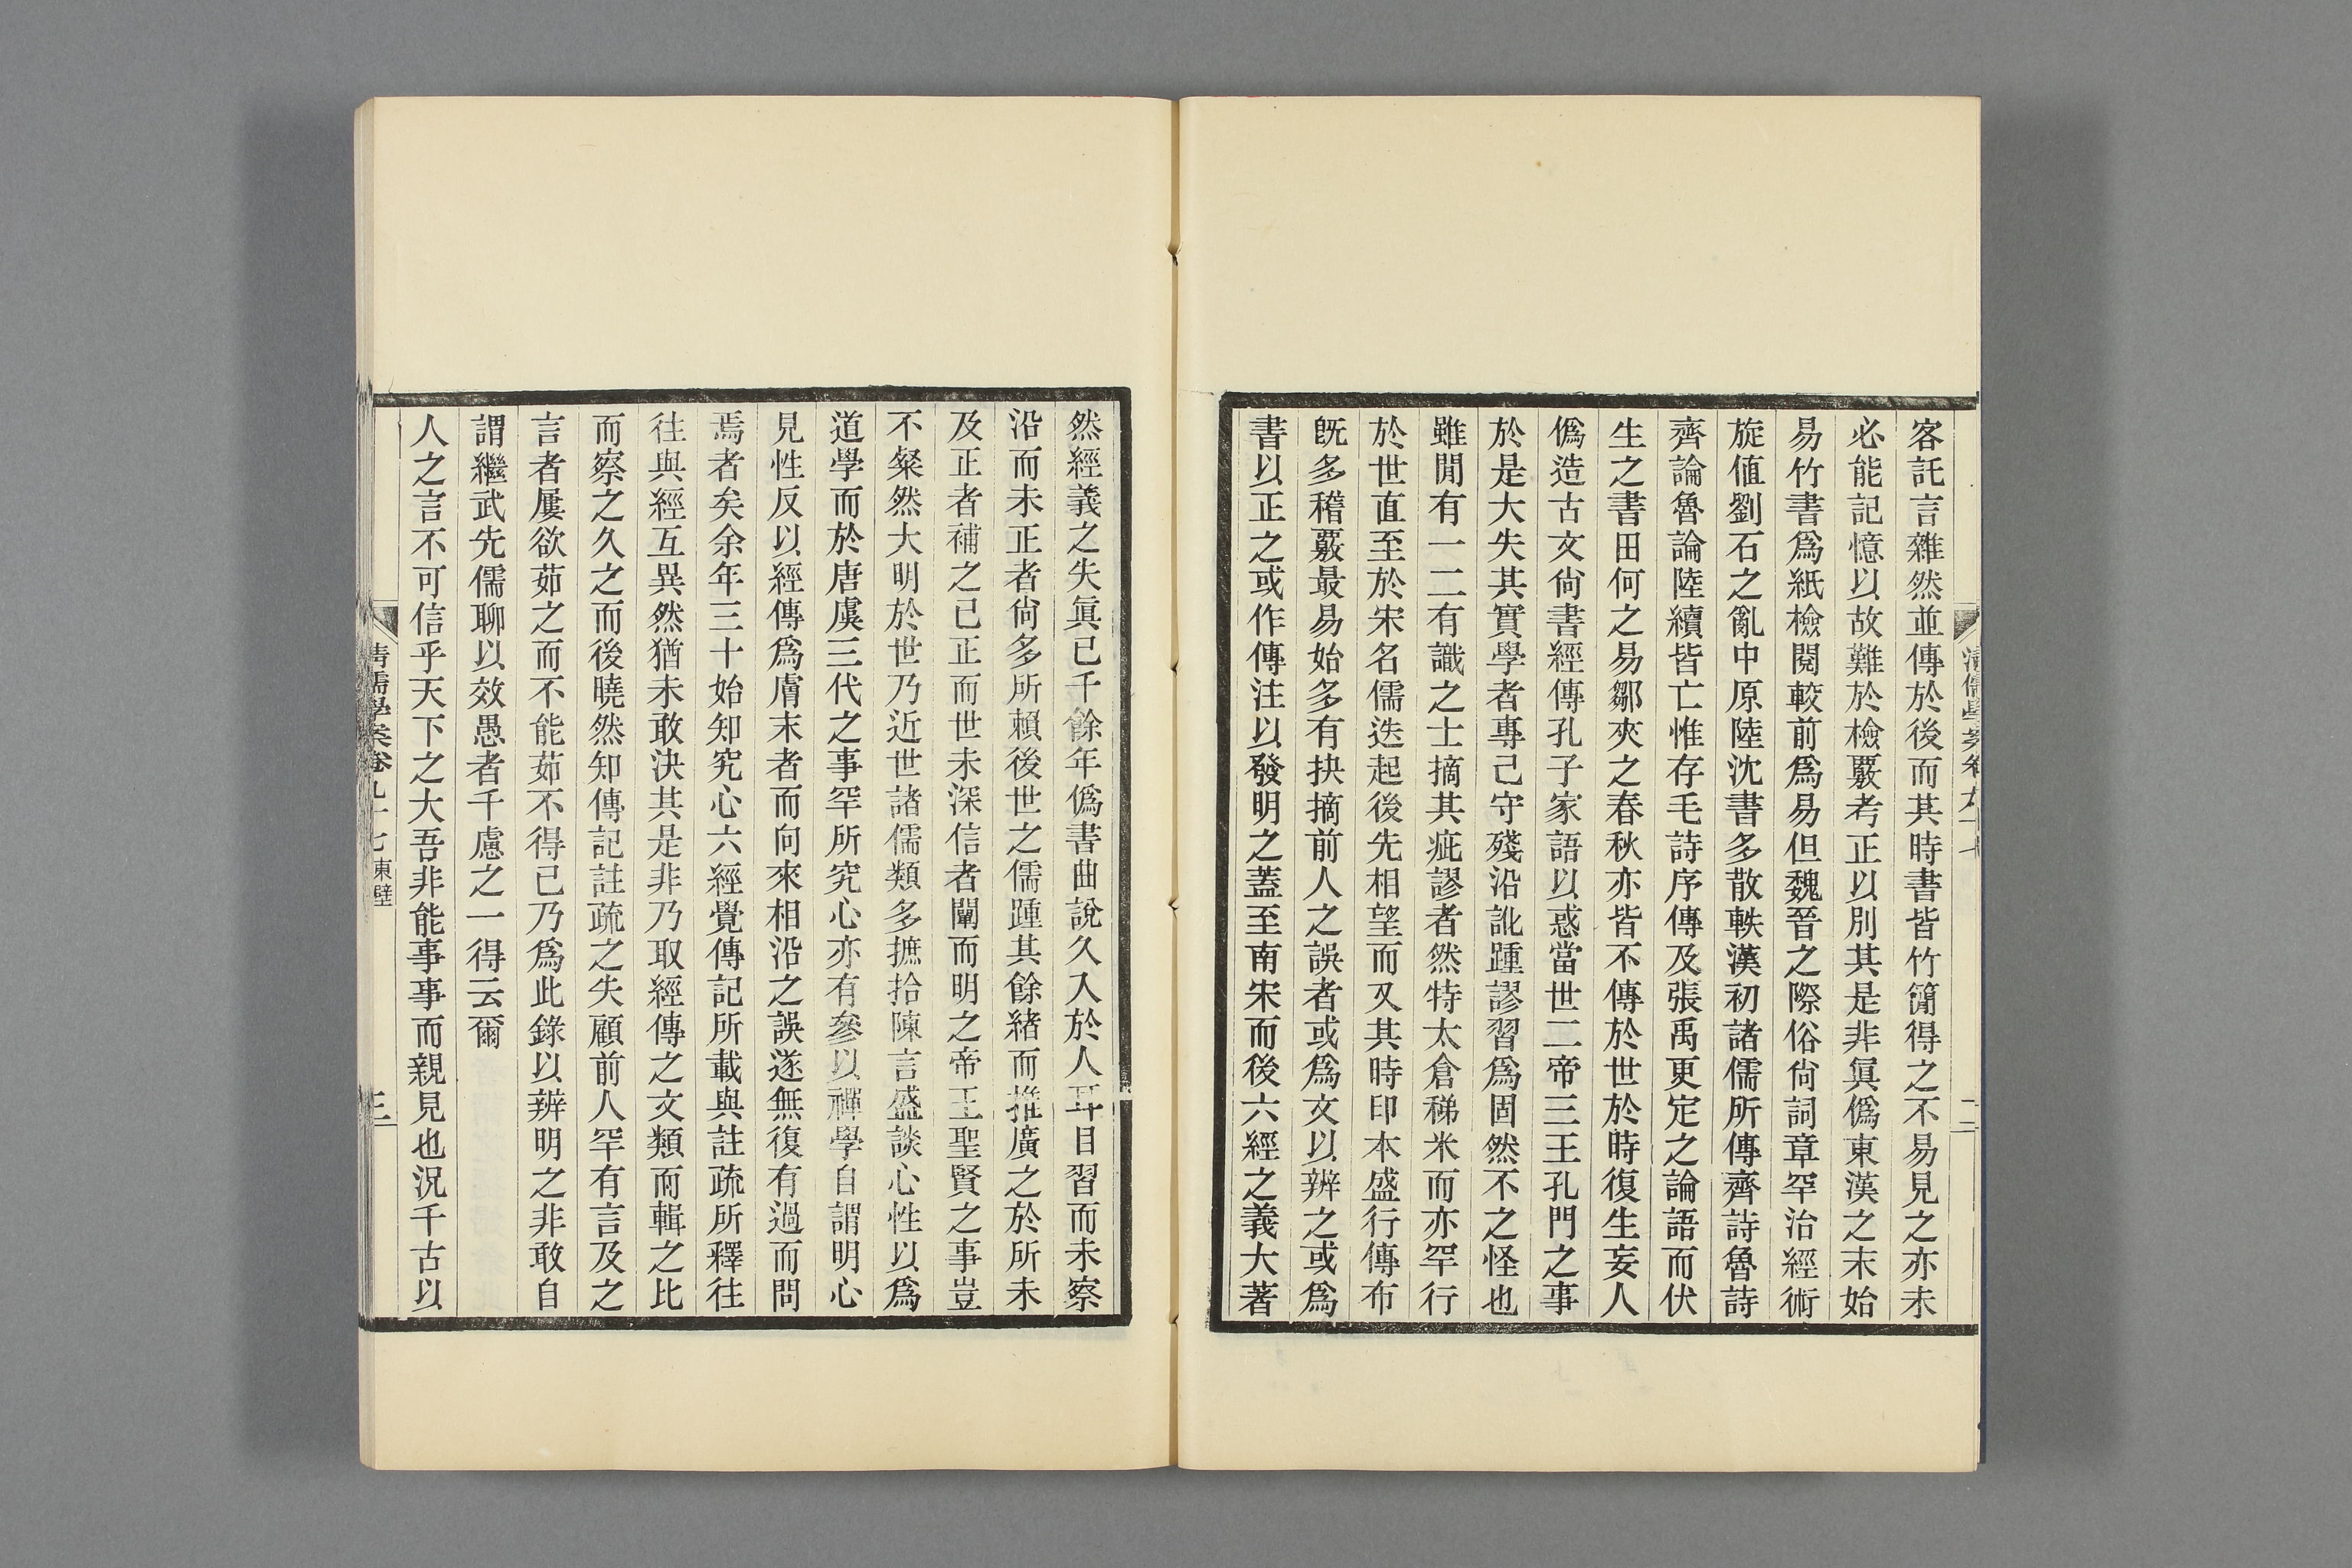 客託言雜然並傳於後而其時書皆竹簡得之不易見之亦未
必能記憶以故難於檢覈考正以別其是非眞僞東漢之末始
易竹書爲紙檢閱較前爲易但魏晉之際俗尙詞章罕治經術
旋值劉石之亂中原陸沈書多散軼漢初諸儒所傳齊詩魯詩
齊論魯論陸續皆亡惟存毛詩序傳及張禹更定之論語而伏
生之書田何之易鄒夾之春秋亦皆不傳於世於時復生妄人
僞造古文尙書經傳孔子家語以惑當世二帝三王孔門之事
於是大失其實學者專己守殘沿訛踵謬習爲固然不之怪也
雖閒有一二有識之士摘其疵謬者然特太倉稊米而亦罕行
於世直至於宋名儒迭起後先相望而又其時印本盛行傳布
旣多稽覈最易始多有抉摘前人之誤者或爲文以辨之或爲
書以正之或作傳注以發明之蓋至南宋而後六經之義大著
然經義之失眞已千餘年僞書曲說久入於人耳目習而未察
沿而未正者尙多所賴後世之儒踵其餘緒而推廣之於所未
及正者補之已正而世未深信者闡而明之帝王聖賢之事豈
不粲然大明於世乃近世諸儒類多摭拾陳言盛談心性以爲
道學而於唐虞三代之事罕所究心亦有參以禪學自謂明心
見性反以經傳爲膚末者而向來相沿之誤遂無復有過而問
焉者矣余年三十始知究心六經覺傳記所載與註疏所釋往
往與經互異然猶未敢決其是非乃取經傳之文類而輯之比
而察之久之而後曉然知傳記註疏之失顧前人罕有言及之
言者屢欲茹之而不能茹不得已乃爲此錄以辨明之非敢自
謂繼武先儒聊以效愚者千慮之一得云爾
人之言不可信乎天下之大吾非能事事而親見也況千古以
清儒學案卷九十七 東壁
三
清儒學案卷九十七
二